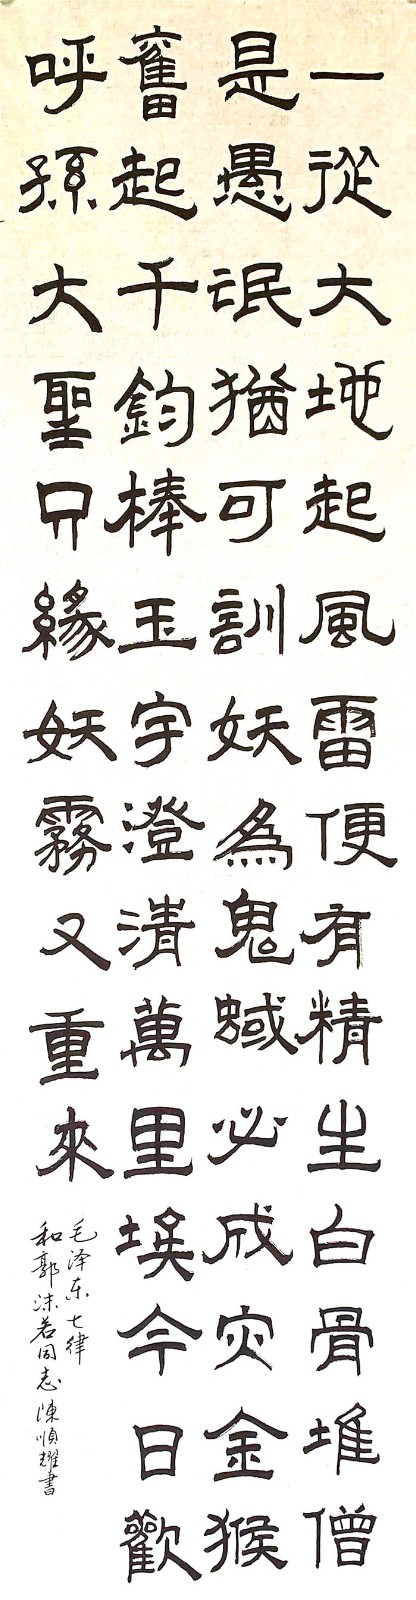 一從大地起風雷便有精生白骨堆僧
是愚氓猶可訓妖為鬼蜮必成灾金猴
奮起千鈞棒玉宇澄清萬里埃今日歡
呼孫大聖只緣妖霧又重來
毛泽东七律
和郭沫若同志陳順耀書